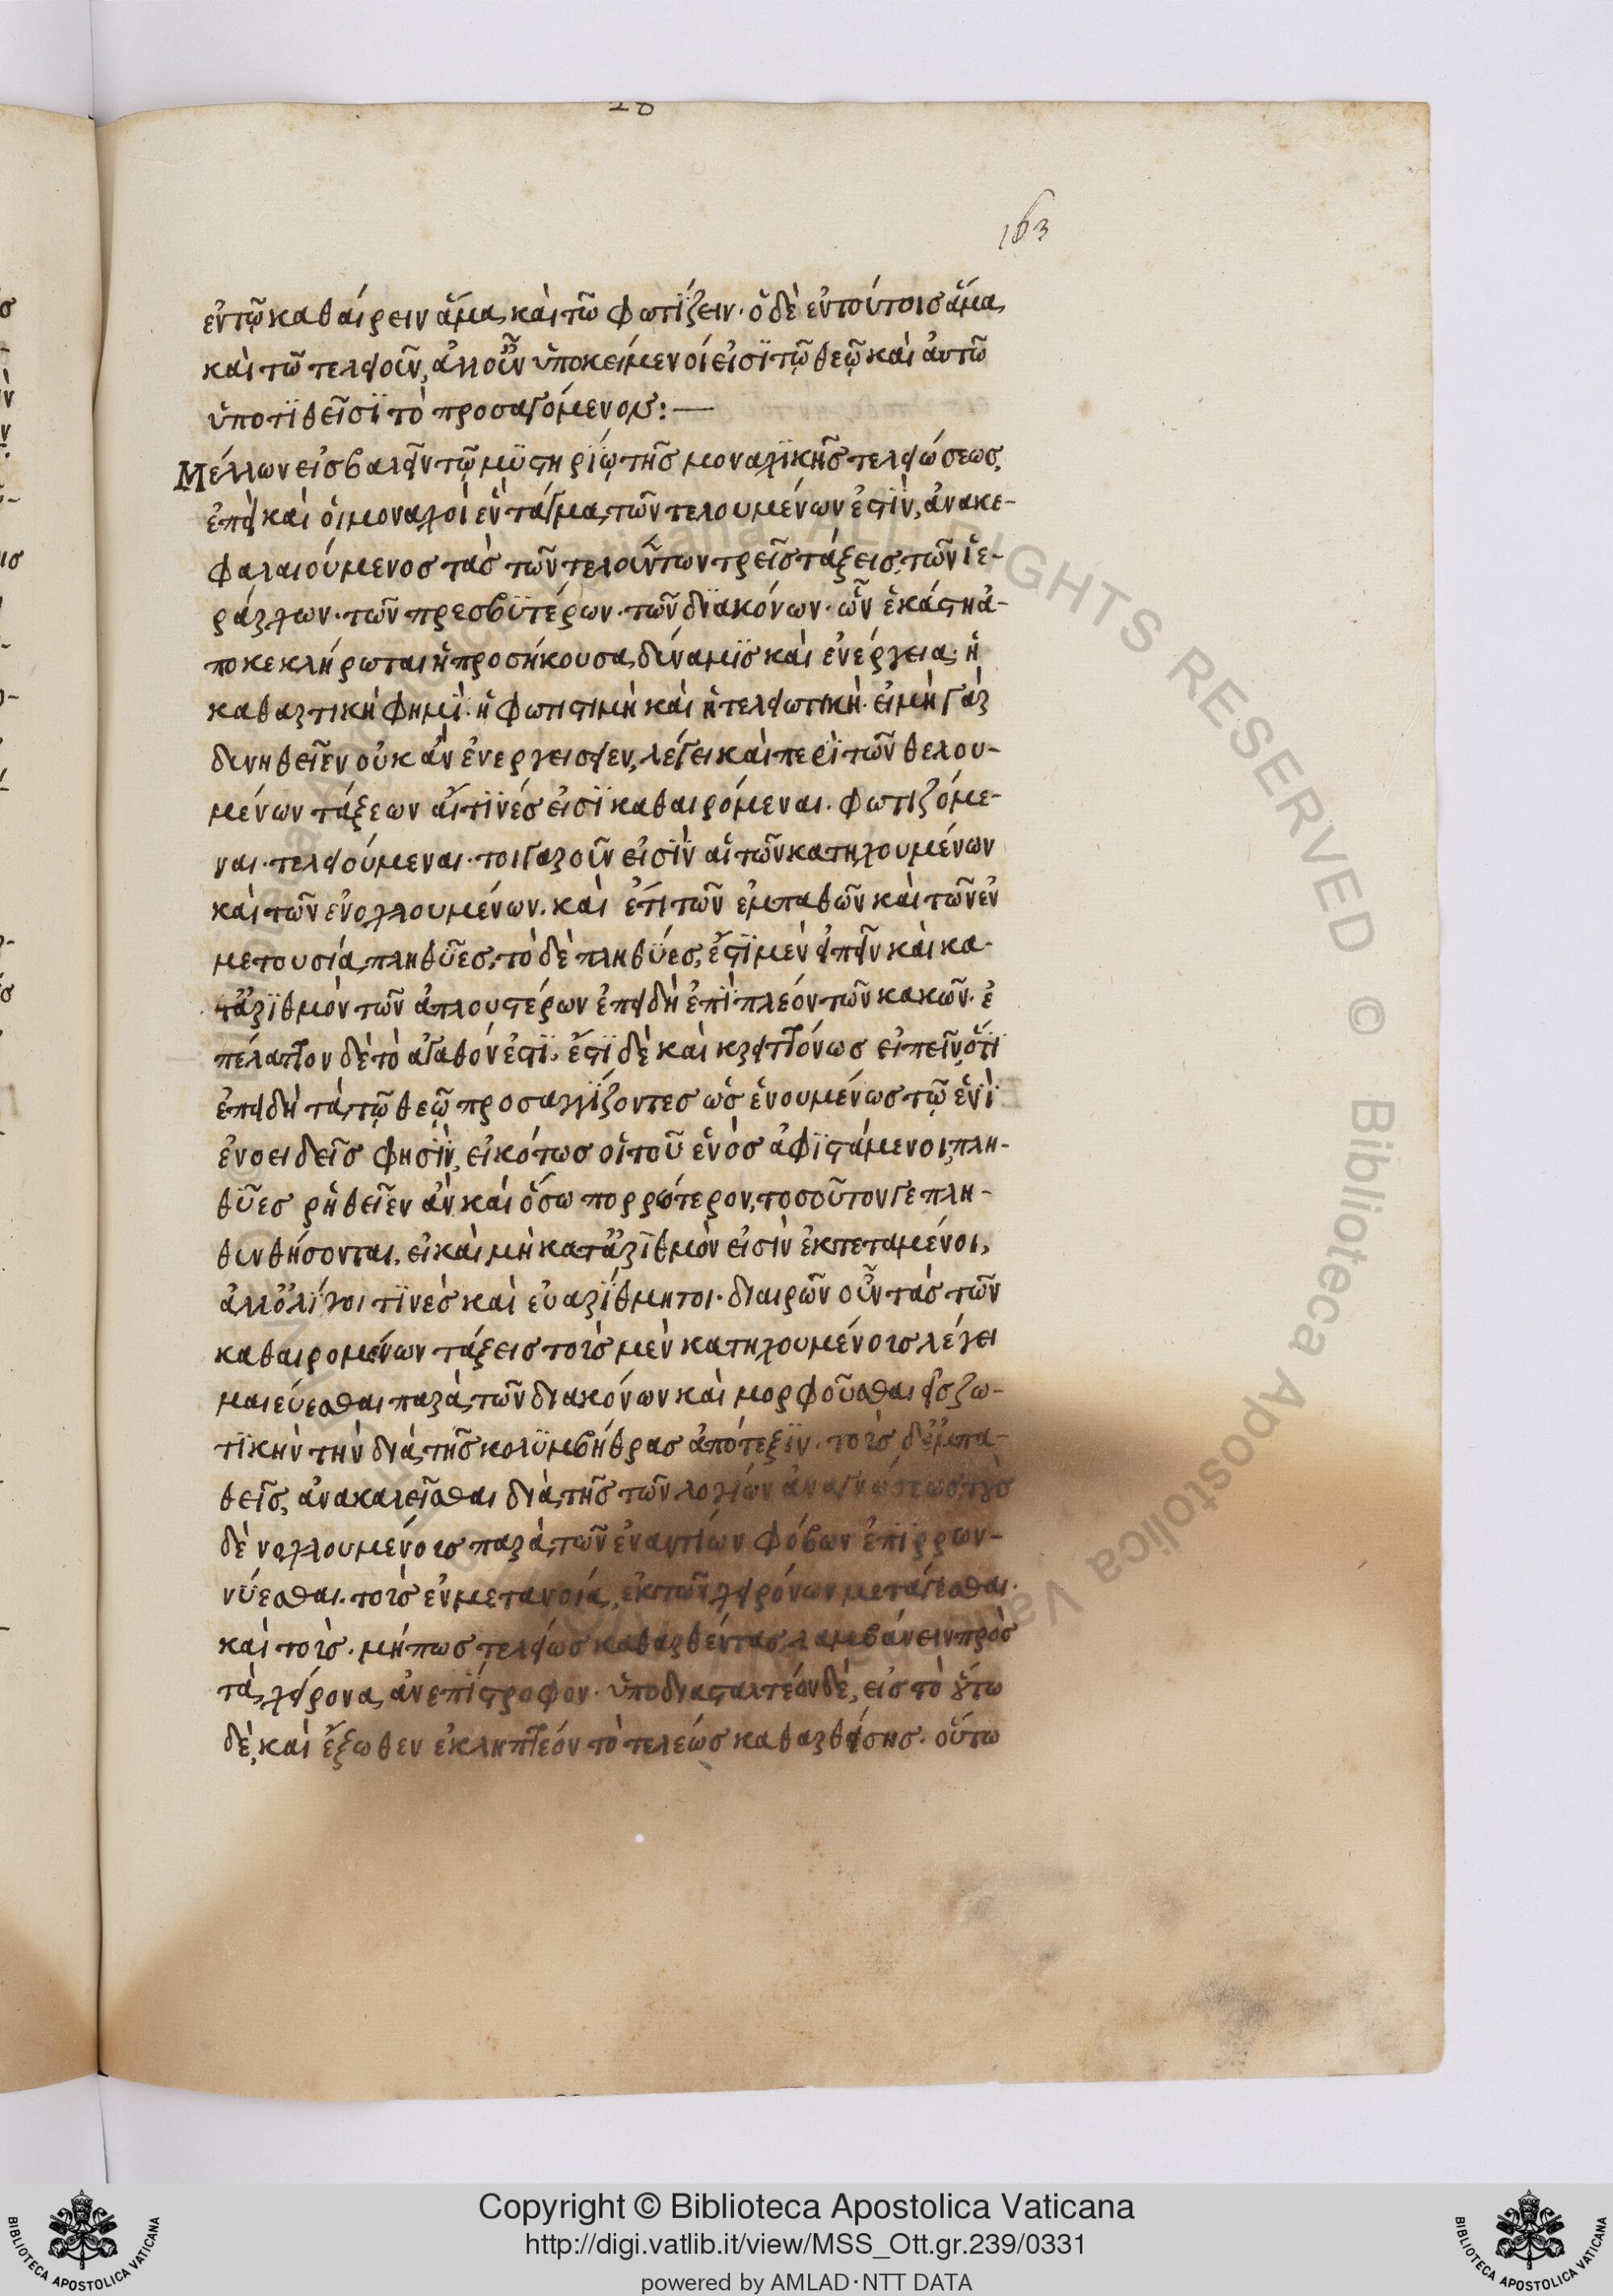 163
ἐν τῷ καθαίρειν ἅμα καὶ τῶ φωτίζειν· ὁ δὲ ἐν τούτοις ἅμα
καὶ τῶ τελειοῦν, ἀλλ' οὖν ὑποκείμενοί εἰσι τῷ θεῷ καὶ ἀυτῶ
ὑποτιθεῖσι τὸ προσαγόμενον:—
Μέλλων εἰσβαλεῖν τῷ μυστηρίῳ τῆς μοναχικῆς τελειώσεως,
ἐπεὶ καὶ ὁι μοναχοὶ ἓν τάγμα τῶν τελουμένων ἐστὶν, ἀνακε-
φαλαιούμενος τὰς τῶν τελούντων τρεῖς τάξεις, τῶν ἱε-
ράρχων· τῶν πρεσβυτέρων· τῶν διακόνων· ὧν ἑκάστη ἀ-
ποκεκλήρωται ἡ προσήκουσα δύναμις καὶ ἐνέργεια· ἡ
καθαρτικὴ φημὶ· ἡ φωτιστικὴ καὶ ἡ τελειωτικὴ· εἰ μὴ γὰρ
δυνηθεῖεν οὐκ ἂν ἐνεργείσειεν, λέγει καὶ περὶ τῶν θελου-
μένων τάξεων αἵτινές εἰσι καθαιρόμεναι· φωτιζόμε-
ναι· τελειούμεναι· τοιγαροῦν εἰσὶν αἱ τῶν κατηχουμένων
καὶ τῶν ἐνοχλουμένων· καὶ ἔτι τῶν ἐμπαθῶν καὶ τῶν ἐν
μετουσία πληθῦες, τὸ δὲ πληθύες, ἔστι μὲν εἰπεῖν καὶ κα-
τ' ἀριθμὸν τῶν ἁπλουστέρων ἐπειδὴ ἐπὶ πλέον τῶν κακῶν· ἐ
πέλαττον δὲ τὸ ἀγαθόν ἐστι, ἔστι δὲ καὶ κρειττόνως εἰπεῖν, ὅτι
ἐπειδὴ τὰ τῷ θεῷ προσαγγίζοντες ὡς ἑνουμένως τῷ ἑνὶ
ἑνοειδεῖς φησὶν, εἰκότως οἱ τοῦ ἑνὸς ἀφιστάμενοι, πλη-
θῦες ῥηθεῖεν ἂν, καὶ ὅσω πορρώτερον, τοσοῦτον γε πλη-
θυνθήσονται, εἰ καὶ μὴ κατ' ἀριθμὸν εἰσὶν ἐκπεταμένοι,
ἀλλ' ὀλίγοι τινὲς καὶ εὐαρίθμητοι· διαιρῶν οὖν τὰς τῶν
καθαιρομένων τάξεις τοῖς μὲν κατηχουμένοις λέγει
μαιεύεσθαι παρὰ τῶν διακόνων καὶ μορφοῦσθαι εἰς ζω-
τικὴν τὴν διὰ τῆς κολυμβήθρας ἀπότεξιν· τοῖς δ' ἐμπα-
θεῖς, ἀνακαλεῖσθαι διὰ τῆς τῶν λογίων ἀναγνώσεως, τοῖς
δὲ νοχλουμένοις παρὰ τῶν ἐναντίων φόβων ἐπιρρων-
νύεσθαι· τοῖς ἐν μετανοία, ἐκ τῶν χειρόνων μετάγεσθαι·
καὶ τοῖς· μήπως τελείως καθαρθέντας λαμβάνειν πρὸς
τὰ χείρονα ἀνεπίστροφον· ὑποδιασταλτέον δὲ, εἰς τὸ οὕτω
δὲ, καὶ ἔξωθεν ἐκληπτέον τὸ τελέως καθαρθείσης· οὕτω
Copyright © Biblioteca Apostolica Vaticana
http://digi.vatlib.it/view/MSS_Ott.gr.239/0331
powered by AMLAD·NTT DATA